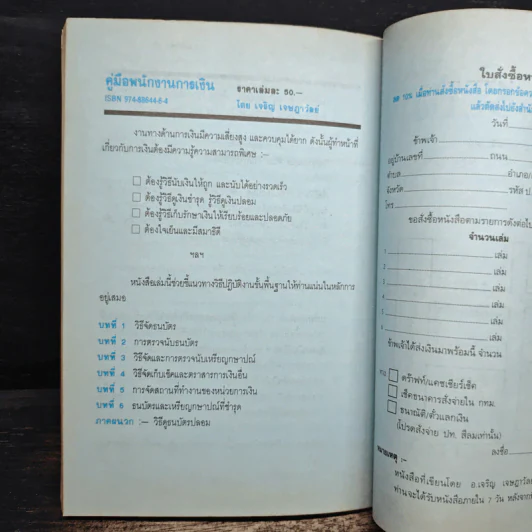 คู่มือพนักงานการเงิน ราคาเล่มละ 50.—
ISBN 974-88644-6-4 โดย เจริญ เจษฎาวัลย์
งานทางด้านการเงินมีความเสี่ยงสูง และควบคุมได้ยาก ดังนั้นผู้ทำหน้าที่
เกี่ยวกับการเงินต้องมีความรู้ความสามารถพิเศษ :—
☐ ต้องรู้วิธีนับเงินให้ถูก และนับได้อย่างรวดเร็ว
☐ ต้องรู้วิธีดูเงินชำรุด รู้วิธีดูเงินปลอม
☐ ต้องรู้วิธีเก็บรักษาเงินให้เรียบร้อยและปลอดภัย
☐ ต้องใจเย็นและมีสมาธิดี
ฯลฯ
หนังสือเล่มนี้ช่วยชี้แนวทางวิธีปฏิบัติงานขั้นพื้นฐานให้ท่านแน่นในหลักการ
อยู่เสมอ
บทที่ 1 วิธีจัดธนบัตร
บทที่ 2 การตรวจนับธนบัตร
บทที่ 3 วิธีจัดและการตรวจนับเหรียญกษาปณ์
บทที่ 4 วิธีจัดเก็บเช็คและตราสารการเงินอื่น
บทที่ 5 การจัดสถานที่ทำงานของหน่วยการเงิน
บทที่ 6 ธนบัตรและเหรียญกษาปณ์ที่ชำรุด
ภาคผนวก :— วิธีดูธนบัตรปลอม
ใบสั่งซื้อห
ลด 10% เมื่อท่านสั่งซื้อหนังสือ โดยกรอกข้อคว
แล้วตัดส่งไปยังสำนั
วันที่
ข้าพเจ้า
อยู่บ้านเลขที่ ถนน
ตำบล อำเภอ/
จังหวัด รหัส ป
โทร
ขอสั่งซื้อหนังสือตามรายการดังต่อไป
จำนวนเล่ม
1 เล่ม
2 เล่ม
3 เล่ม
4 เล่ม
5 เล่ม
6 เล่ม
ข้าพเจ้าได้ส่งเงินมาพร้อมนี้ จำนวน
☐ ดร๊าฟท์/แคชเชียร์เช็ค
☐ เช็คธนาคารสั่งจ่ายใน กทม.
☐ ธนาณัติ/ตั๋วแลกเงิน
(โปรดสั่งจ่าย ปท. สีลมเท่านั้น)
ลงชื่อ
หมายเหตุ :—
หนังสือที่เขียนโดย อ.เจริญ เจษฎาวัล
ท่านจะได้รับหนังสือภายใน 7 วัน หลังจาก